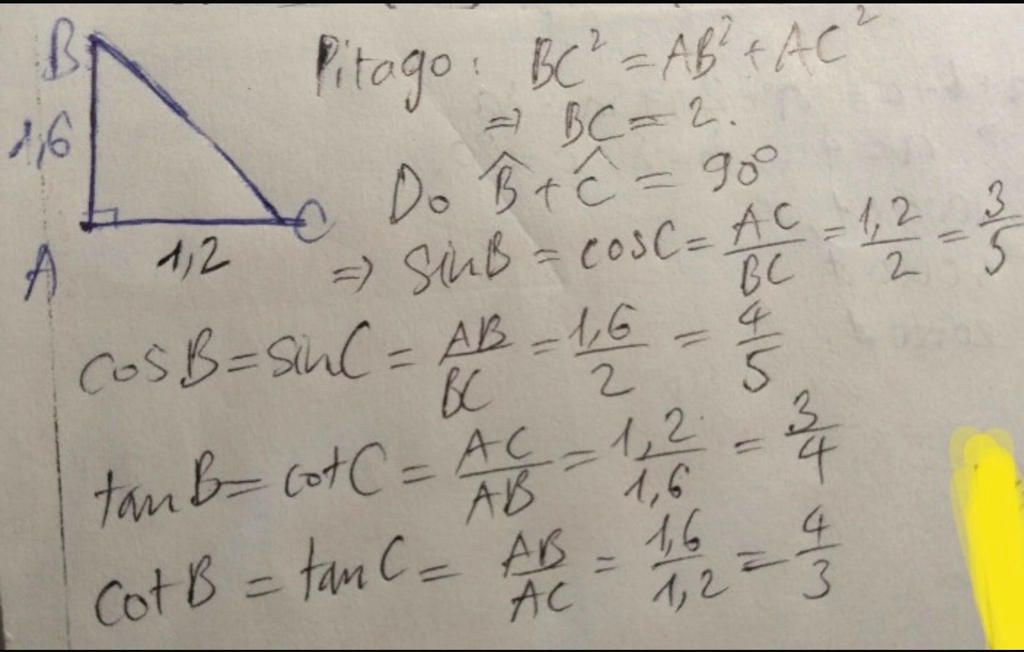 B
1,6
A
1,2
C
Pitago: BC² = AB² + AC²
⇒ BC = 2.
Do B̂ + Ĉ = 90°
⇒ sinB = cosC = AC/BC = 1,2/2 = 3/5
cosB = sinC = AB/BC = 1,6/2 = 4/5
tanB = cotC = AC/AB = 1,2/1,6 = 3/4
cotB = tanC = AB/AC = 1,6/1,2 = 4/3